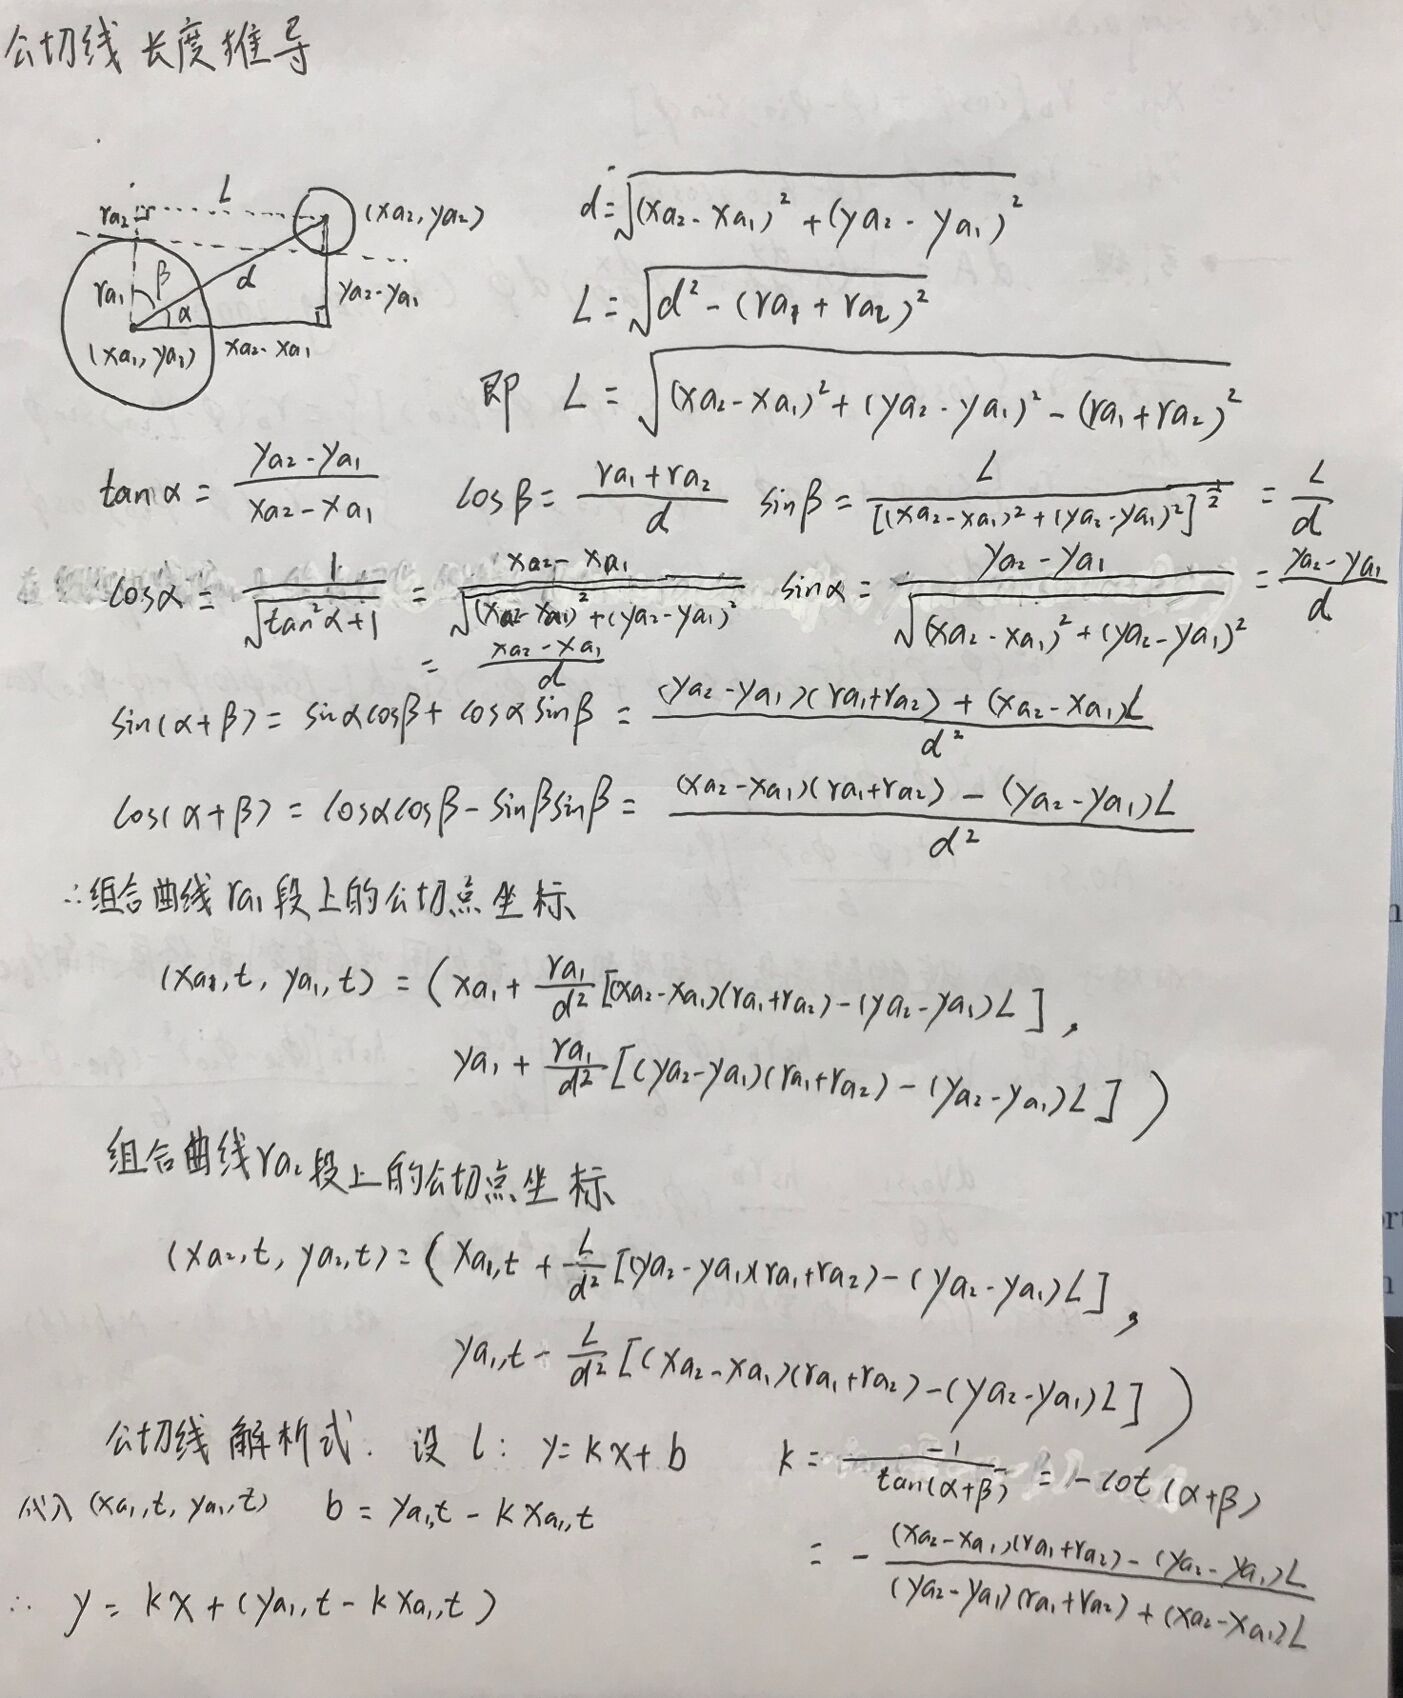 公切线长度推导
L
ra₂
(xa₂, ya₂)
β
d
ra₁
α
ya₂-ya₁
(xa₁, ya₁)
xa₂-xa₁
d=√((xa₂-xa₁)²+(ya₂-ya₁)²)
L=√(d²-(ra₁+ra₂)²)
即 L=√((xa₂-xa₁)²+(ya₂-ya₁)²-(ra₁+ra₂)²)
tanα=(ya₂-ya₁)/(xa₂-xa₁) cosβ=(ra₁+ra₂)/d sinβ=L/[(xa₂-xa₁)²+(ya₂-ya₁)²]^(1/2)=L/d
cosα=1/√(tan²α+1)=(xa₂-xa₁)/√((xa₂-xa₁)²+(ya₂-ya₁)²) sinα=(ya₂-ya₁)/√((xa₂-xa₁)²+(ya₂-ya₁)²)=(ya₂-ya₁)/d
=(xa₂-xa₁)/d
sin(α+β)=sinαcosβ+cosαsinβ=((ya₂-ya₁)(ra₁+ra₂)+(xa₂-xa₁)L)/d²
cos(α+β)=cosαcosβ-sinβsinβ=((xa₂-xa₁)(ra₁+ra₂)-(ya₂-ya₁)L)/d²
∴组合曲线ra₁段上的公切点坐标
(xa₁,t, ya₁,t)=(xa₁+ra₁/d²[(xa₂-xa₁)(ra₁+ra₂)-(ya₂-ya₁)L],
ya₁+ra₁/d²[(ya₂-ya₁)(ra₁+ra₂)-(ya₂-ya₁)L])
组合曲线ra₂段上的公切点坐标
(xa₂,t, ya₂,t)=(xa₁,t+L/d²[(ya₂-ya₁)(ra₁+ra₂)-(ya₂-ya₁)L],
ya₁,t-L/d²[(xa₂-xa₁)(ra₁+ra₂)-(ya₂-ya₁)L])
公切线解析式. 设 l: y=kx+b k=-1/tan(α+β)=-cot(α+β)
代入(xa₁,t, ya₁,t) b=ya₁,t-kxa₁,t
=-((xa₂-xa₁)(ra₁+ra₂)-(ya₂-ya₁)L)/((ya₂-ya₁)(ra₁+ra₂)+(xa₂-xa₁)L)
∴ y=kx+(ya₁,t-kxa₁,t)